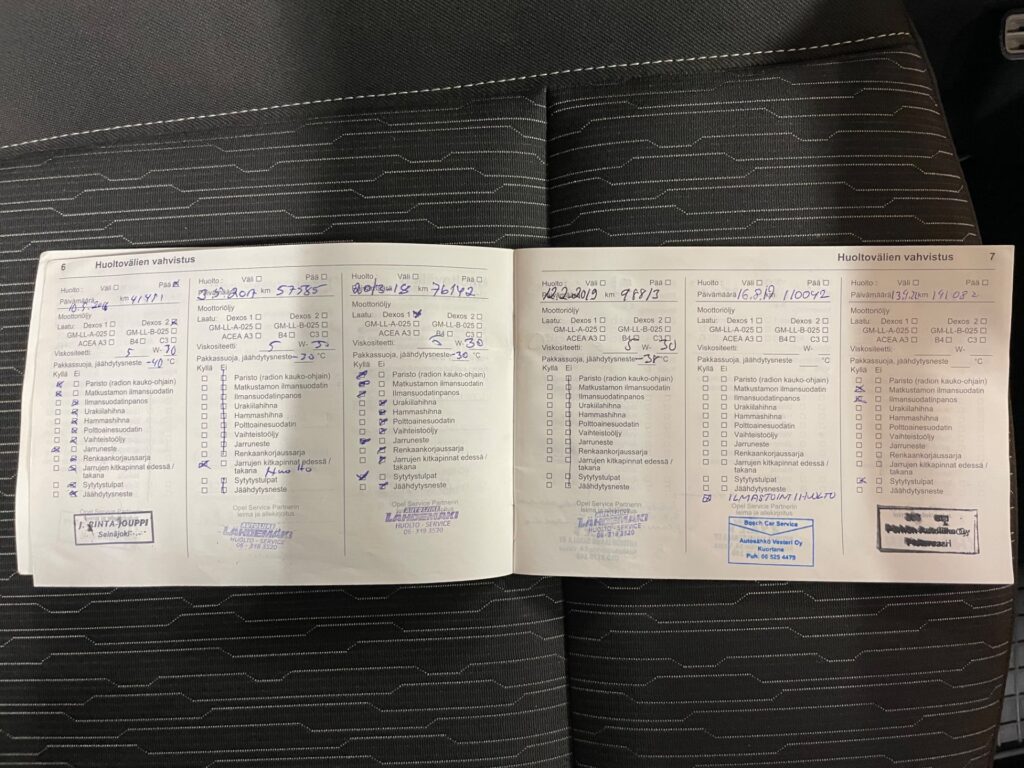 6 Huoltovälien vahvistus
Huolto: Väli Pää
Päivämäärä km 41411
Moottoriöljy
Laatu: Dexos 1 Dexos 2
GM-LL-A-025 GM-LL-B-025
ACEA A3 B4 C3
Viskositeetti: 5 W-30
Pakkassuoja, jäähdytysneste -40 °C
Kyllä Ei
Paristo (radion kauko-ohjain)
Matkustamon ilmansuodatin
Ilmansuodatinpanos
Urakiilahihna
Hammashihna
Polttoainesuodatin
Vaihteistoöljy
Jarruneste
Renkaankorjaussarja
Jarrujen kitkapinnat edessä /
takana
Sytytystulpat
Jäähdytysneste
J. RINTA-JOUPPI
Seinäjoki
Huolto: Väli Pää
3.5.2017 km 57585
Moottoriöljy
Laatu: Dexos 1 Dexos 2
GM-LL-A-025 GM-LL-B-025
ACEA A3 B4 C3
Viskositeetti: 5 W-30
Pakkassuoja, jäähdytysneste -30 °C
Kyllä Ei
Paristo (radion kauko-ohjain)
Matkustamon ilmansuodatin
Ilmansuodatinpanos
Urakiilahihna
Hammashihna
Polttoainesuodatin
Vaihteistoöljy
Jarruneste
Renkaankorjaussarja
Jarrujen kitkapinnat edessä /
takana Huolto
Sytytystulpat
Jäähdytysneste
Opel Service Partnerin
leima ja allekirjoitus
LAHDEMÄKI
HUOLTO - SERVICE
06 - 319 3520
Huolto: Väli Pää
km 76142
Moottoriöljy
Laatu: Dexos 1 Dexos 2
GM-LL-A-025 GM-LL-B-025
ACEA A3 B4 C3
Viskositeetti: 5 W-30
Pakkassuoja, jäähdytysneste -30 °C
Kyllä Ei
Paristo (radion kauko-ohjain)
Matkustamon ilmansuodatin
Ilmansuodatinpanos
Urakiilahihna
Hammashihna
Polttoainesuodatin
Vaihteistoöljy
Jarruneste
Renkaankorjaussarja
Jarrujen kitkapinnat edessä /
takana
Sytytystulpat
Jäähdytysneste
Opel Service Partnerin
leima ja allekirjoitus
LAHDEMÄKI
HUOLTO - SERVICE
06 - 319 3520
Huoltovälien vahvistus 7
Huolto: Väli Pää
12.2.2019 km 98813
Moottoriöljy
Laatu: Dexos 1 Dexos 2
GM-LL-A-025 GM-LL-B-025
ACEA A3 B4 C3
Viskositeetti: 5 W-30
Pakkassuoja, jäähdytysneste -38 °C
Kyllä Ei
Paristo (radion kauko-ohjain)
Matkustamon ilmansuodatin
Ilmansuodatinpanos
Urakiilahihna
Hammashihna
Polttoainesuodatin
Vaihteistoöljy
Jarruneste
Renkaankorjaussarja
Jarrujen kitkapinnat edessä /
takana
Sytytystulpat
Jäähdytysneste
Opel Service Partnerin
leima ja allekirjoitus
LAHDEMÄKI
HUOLTO - SERVICE
06 - 319 3520
Huolto: Väli Pää
Päivämäärä 110042
Moottoriöljy
Laatu: Dexos 1 Dexos 2
GM-LL-A-025 GM-LL-B-025
ACEA A3 B4 C3
Viskositeetti: W-
Pakkassuoja, jäähdytysneste °C
Kyllä Ei
Paristo (radion kauko-ohjain)
Matkustamon ilmansuodatin
Ilmansuodatinpanos
Urakiilahihna
Hammashihna
Polttoainesuodatin
Vaihteistoöljy
Jarruneste
Renkaankorjaussarja
Jarrujen kitkapinnat edessä /
takana
Sytytystulpat
Jäähdytysneste
ILMASTOINTIHUOLTO
Bosch Car Service
Autosähkö Vesteri Oy
Kuortane
Puh: 06 525 4479
Huolto: Väli Pää
Päivämäärä km 141082
Moottoriöljy
Laatu: Dexos 1 Dexos 2
GM-LL-A-025 GM-LL-B-025
ACEA A3 B4 C3
Viskositeetti: W-
Pakkassuoja, jäähdytysneste °C
Kyllä Ei
Paristo (radion kauko-ohjain)
Matkustamon ilmansuodatin
Ilmansuodatinpanos
Urakiilahihna
Hammashihna
Polttoainesuodatin
Vaihteistoöljy
Jarruneste
Renkaankorjaussarja
Jarrujen kitkapinnat edessä /
takana
Sytytystulpat
Jäähdytysneste